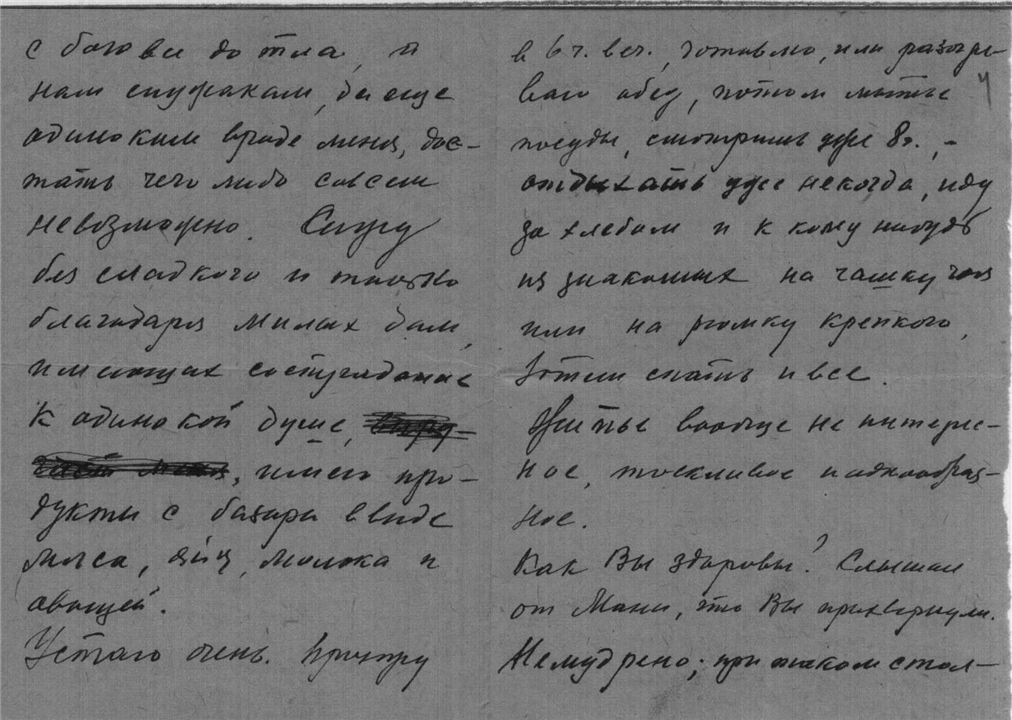 с бою все до тла, а
нам служакам, да еще
одиноким вроде меня, дос-
тать чего либо совсем
невозможно. Сижу
без сладкого и только
благодаря милых дам,
имеющих сострадание
к одинокой душе,
имею про-
дукты с базара ввиде
мяса, яиц, молока и
овощей.
Устаю очень. Приду
в 6 ч. веч., готовлю, или разогре-
ваю обед, потом мытье
посуды, смотришь уже 8 ч., -
отдыхать уже некогда, иду
за хлебом и к кому нибудь
из знакомых на чашку чая
или на рюмку крепкого,
Затем спать и все.
Житье вообще не интерес-
ное, тоскливое и однообраз-
ное.
Как Вы здоровы? Слышал
от Мани, что Вы прихворнули.
Немудрено; при таком стол-